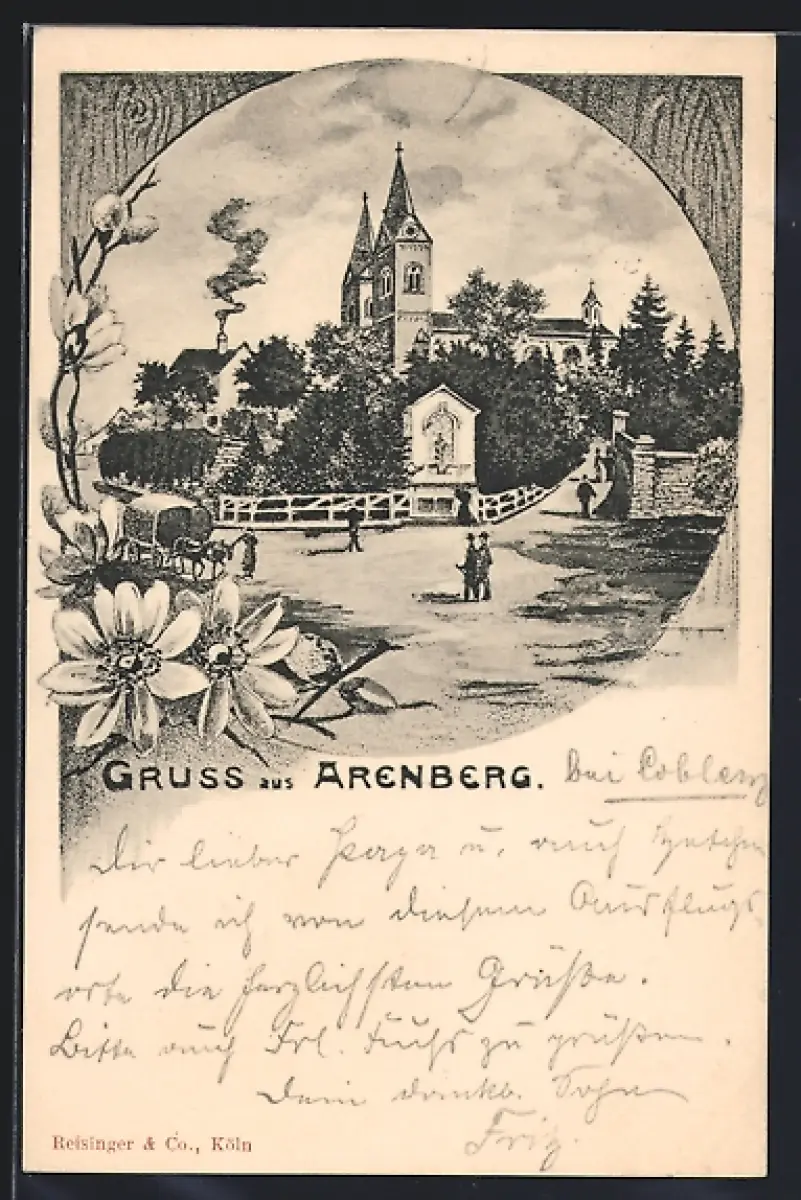 GRUSS aus ARENBERG. bei Coblenz
Dir lieber Papa u. auch
sende ich von diesem Ausflugs-
orte die herzlichsten Grüße.
Bitte auch Frl. Fuchs zu grüßen.
Dein dankb. Sohn
Fritz.
Reisinger & Co., Köln